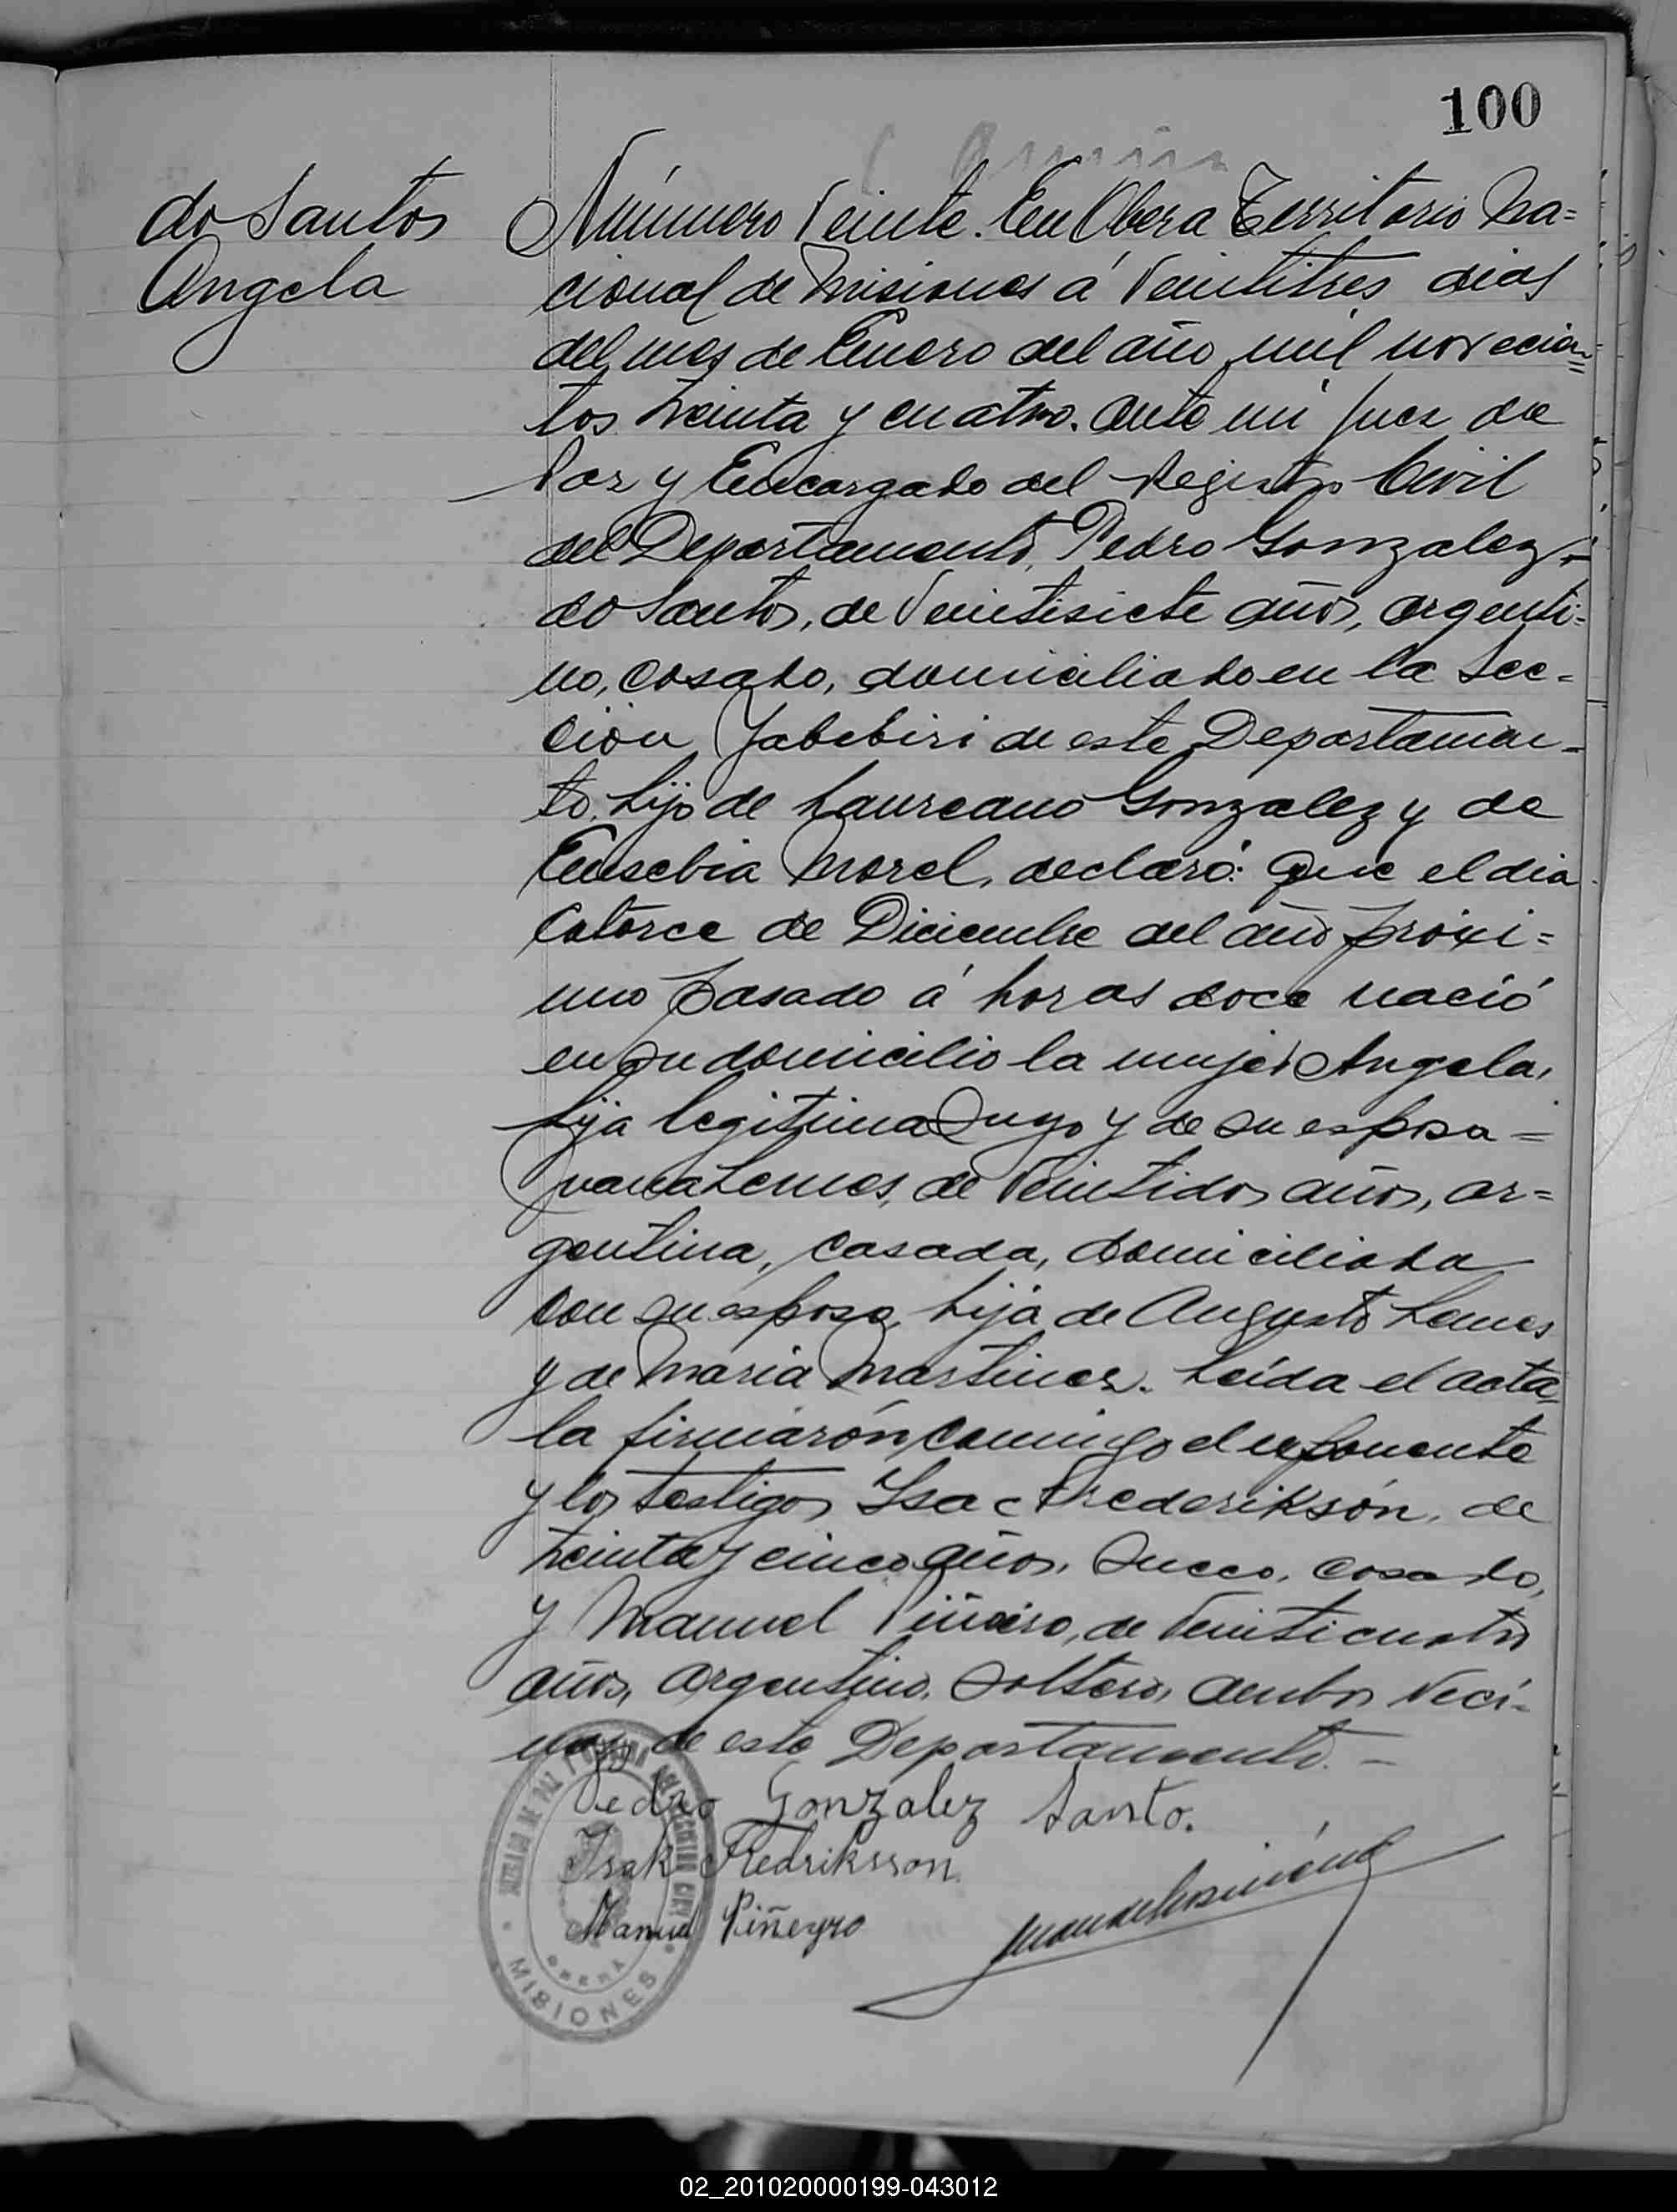 100
do Santos
Angela
Número Veinte. En Obera Territorio Na=
cional de Misiones á Veintitres dias
del mes de Enero del año mil novecien=
tos treinta y cuatro. Ante mi Juez de
Paz y Encargado del Registro Civil
del Departamento, Pedro Gonzalez
do Santos, de Veintisiete años, argenti=
no, casado, domiciliado en la Sec=
ción Yabebiri de este Departamen=
to, hijo de Laureano Gonzalez y de
Eusebia Morel, declaró: Que el dia
Catorce de Diciembre del año próxi=
mo pasado á horas doce nació
en su domicilio la mujer Angela,
hija legitima suya y de su esposa =
Juana Lemes, de Veintidos años, ar=
gentina, casada, domiciliada
con su esposo, hija de Augusto Lemes
y de Maria Martinez. Leída el acta
la firmarón conmigo el exponente
y los testigos Isac Frederiksón, de
treinta y cinco años, Sueco, casado,
y Manuel Piñeiro, de Veinticuatro
años, argentino, soltero, ambos Veci=
nos de este Departamento. —
Pedro Gonzalez Santo.
Isak Fredriksson
Manuel Piñeyro
OBERÁ
MISIONES
02_201020000199-043012